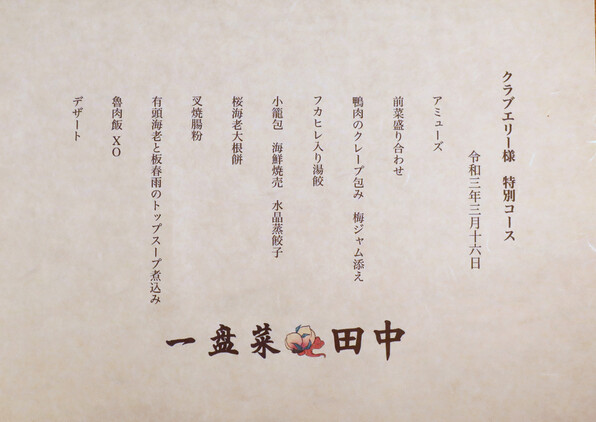 クラブエリー様　特別コース
令和三年三月十六日
アミューズ
前菜盛り合わせ
鴨肉のクレープ包み　梅ジャム添え
フカヒレ入り湯餃
小籠包　海鮮焼売　水晶蒸餃子
桜海老大根餅
叉焼腸粉
有頭海老と板春雨のトップスープ煮込み
魯肉飯 XO
デザート
一盘菜 田中